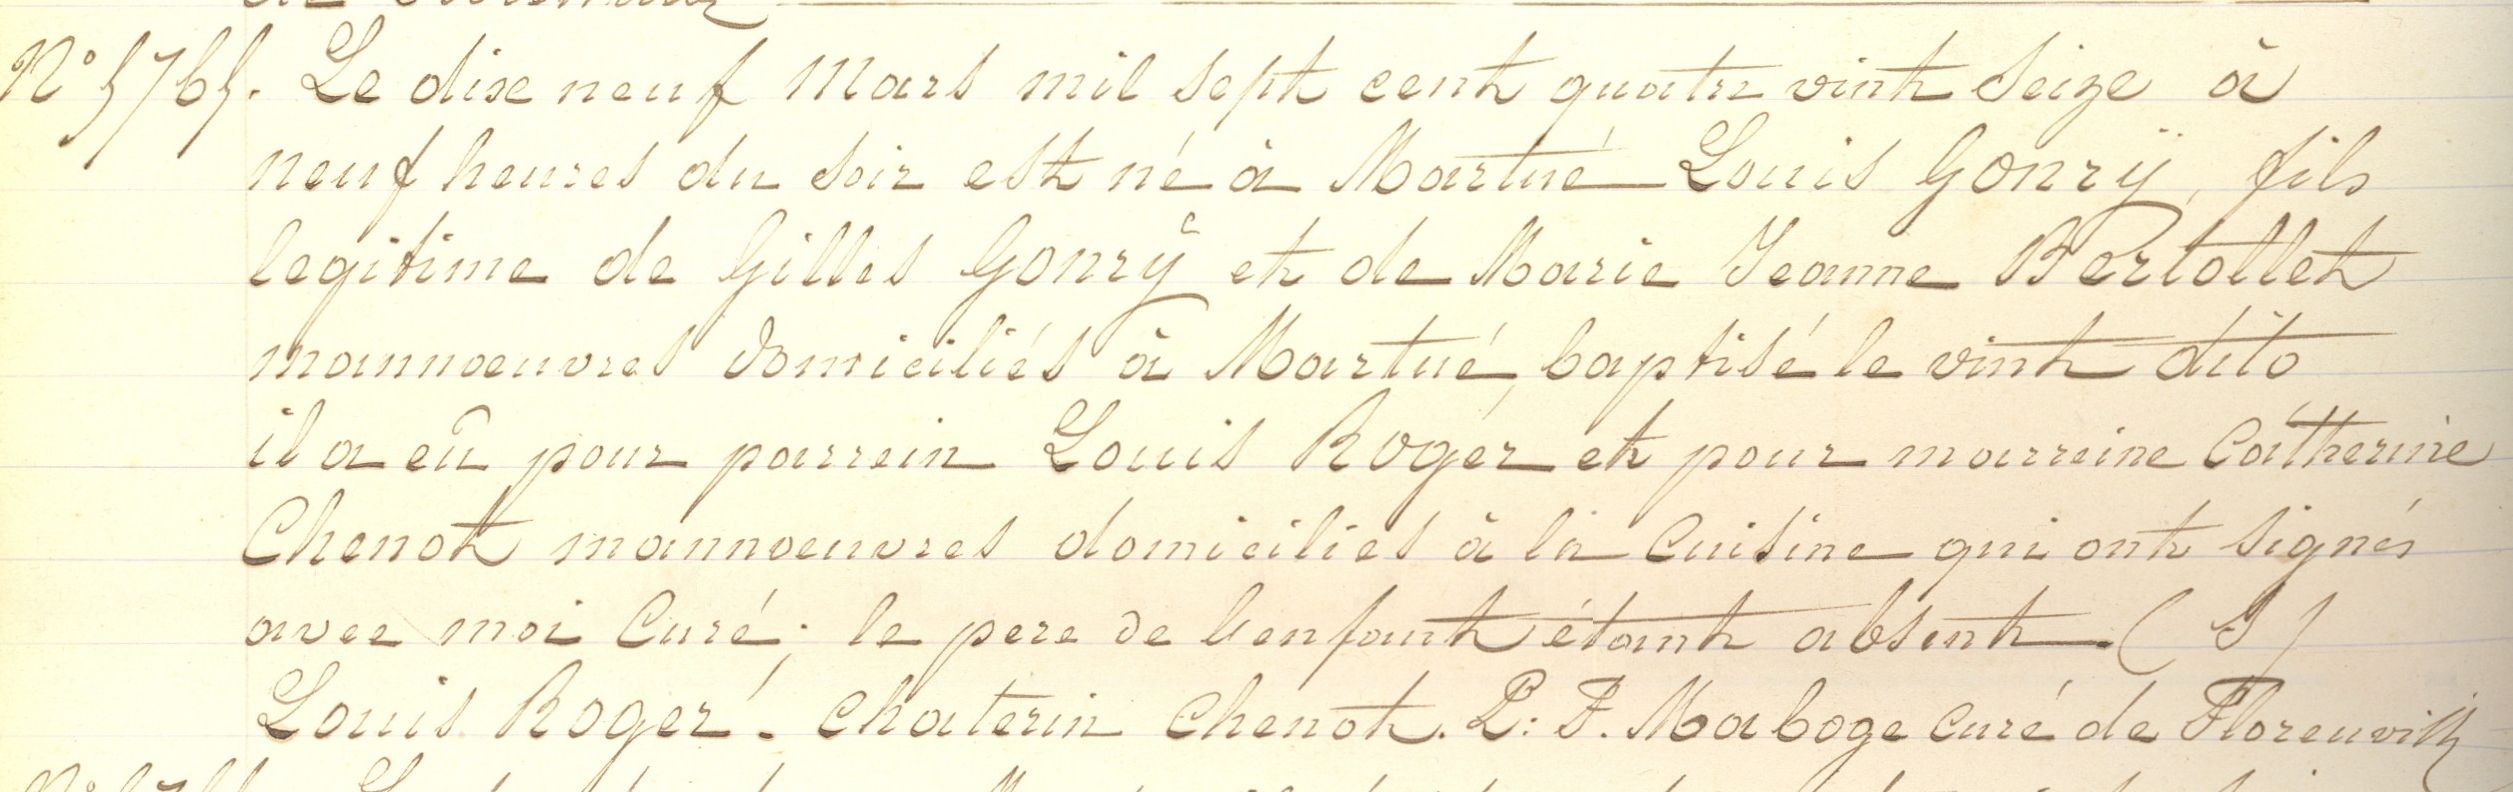 N° 5765. Le dixe neuf Mars mil sept cent quatre vint Seize à
neuf heures du soir est né à Martué Louis Gonrÿ, fils
legitime de Gilles Gonrÿ et de Marie Jeanne Bertollet
mannoeuvres domiciliés à Martué, baptisé le vint dito
il a eû pour parrein Louis Roger et pour marreine Catherine
Chenot mannoeuvres domicilies à la Cuisine qui ont signés
avec moi Curé; le pere de l'enfant étant absent. (S)
Louis Roger. Chaterin Chenot. P: F. Maboge curé de Florenville